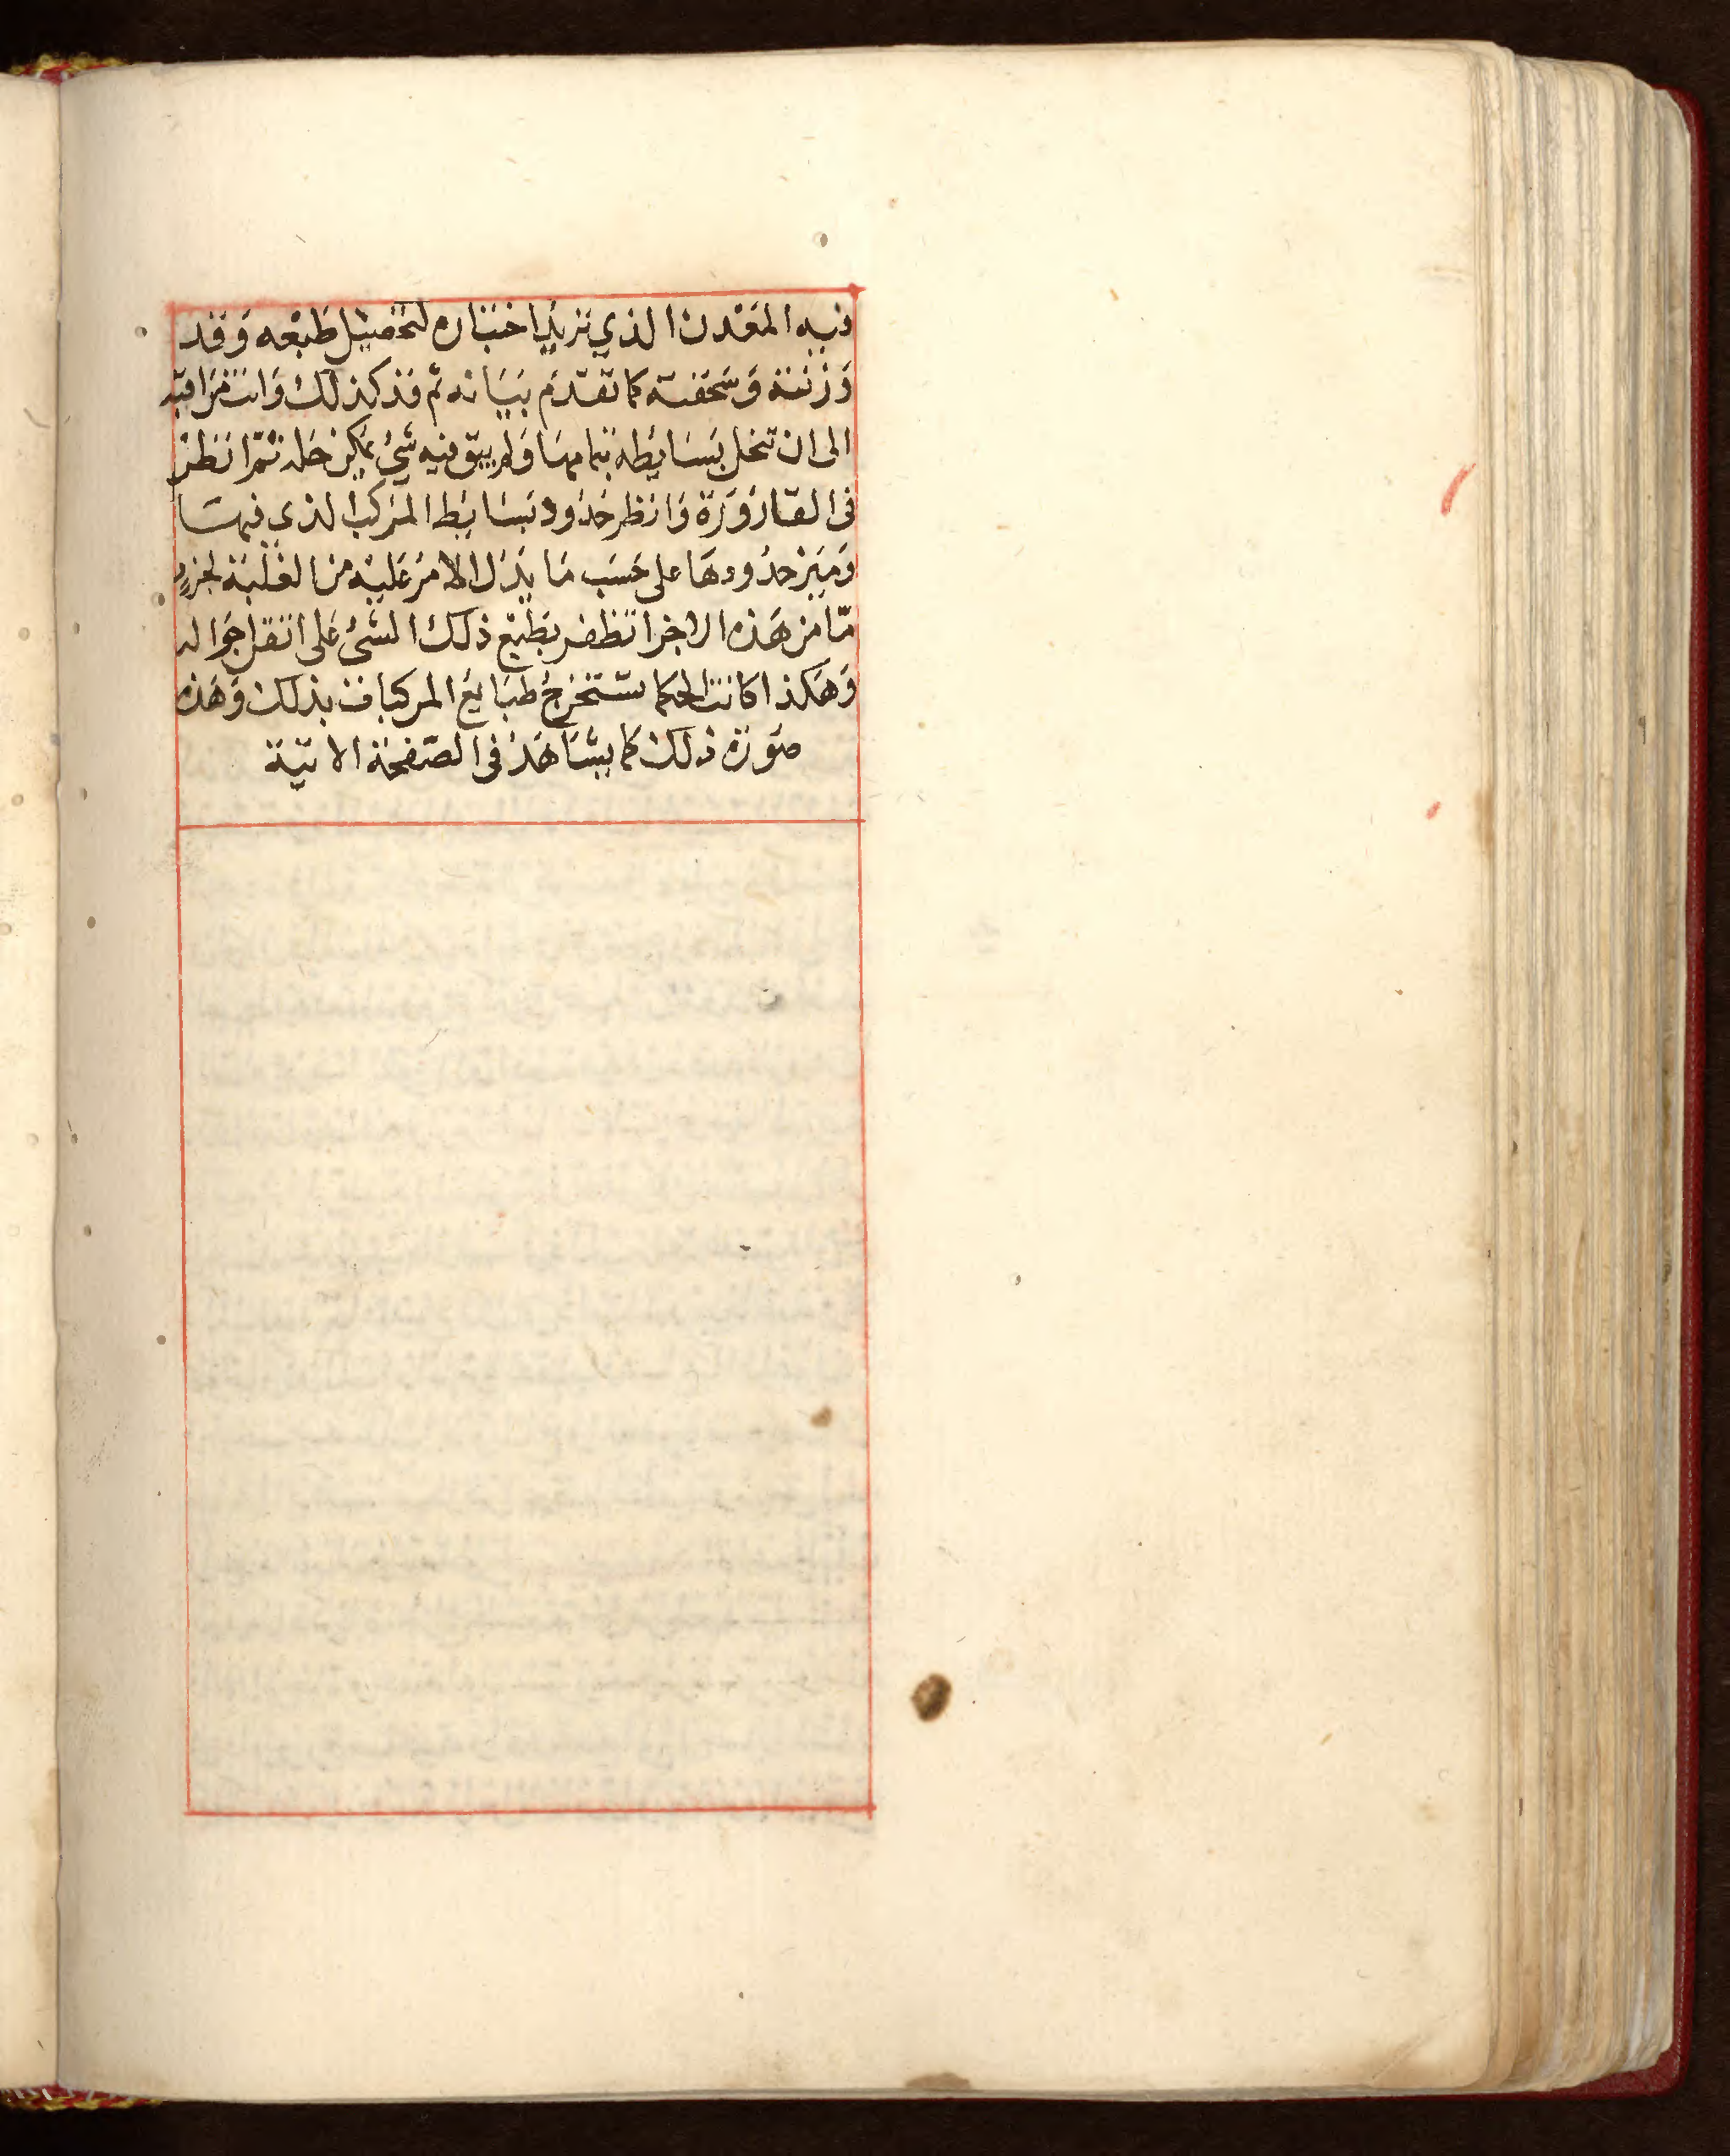 فيه المعدن الذي تريد اختباره لتحصيل طبعه وقد
وزنته وسحقته كما تقدم بيانه ثم فذ كذلك وانت مراقبه
الى ان تنحل بسايطه بتمامها ولم يبق فيه شئ يمكن حله ثم انظر
فى القارورة وانظر حدود بسايط المركب الذي فيها
وميز حدودها على حسب ما يدل الامر عليه من الغلبة لجزء
ما من هذه الاجزا تظفر بطبع ذلك الشئ على اتقن احواله
وهكذا كانت الحكما تستخرج طبايع المركبات بذلك وهذه
صورة ذلك كما يشاهد فى الصفحة الاتية